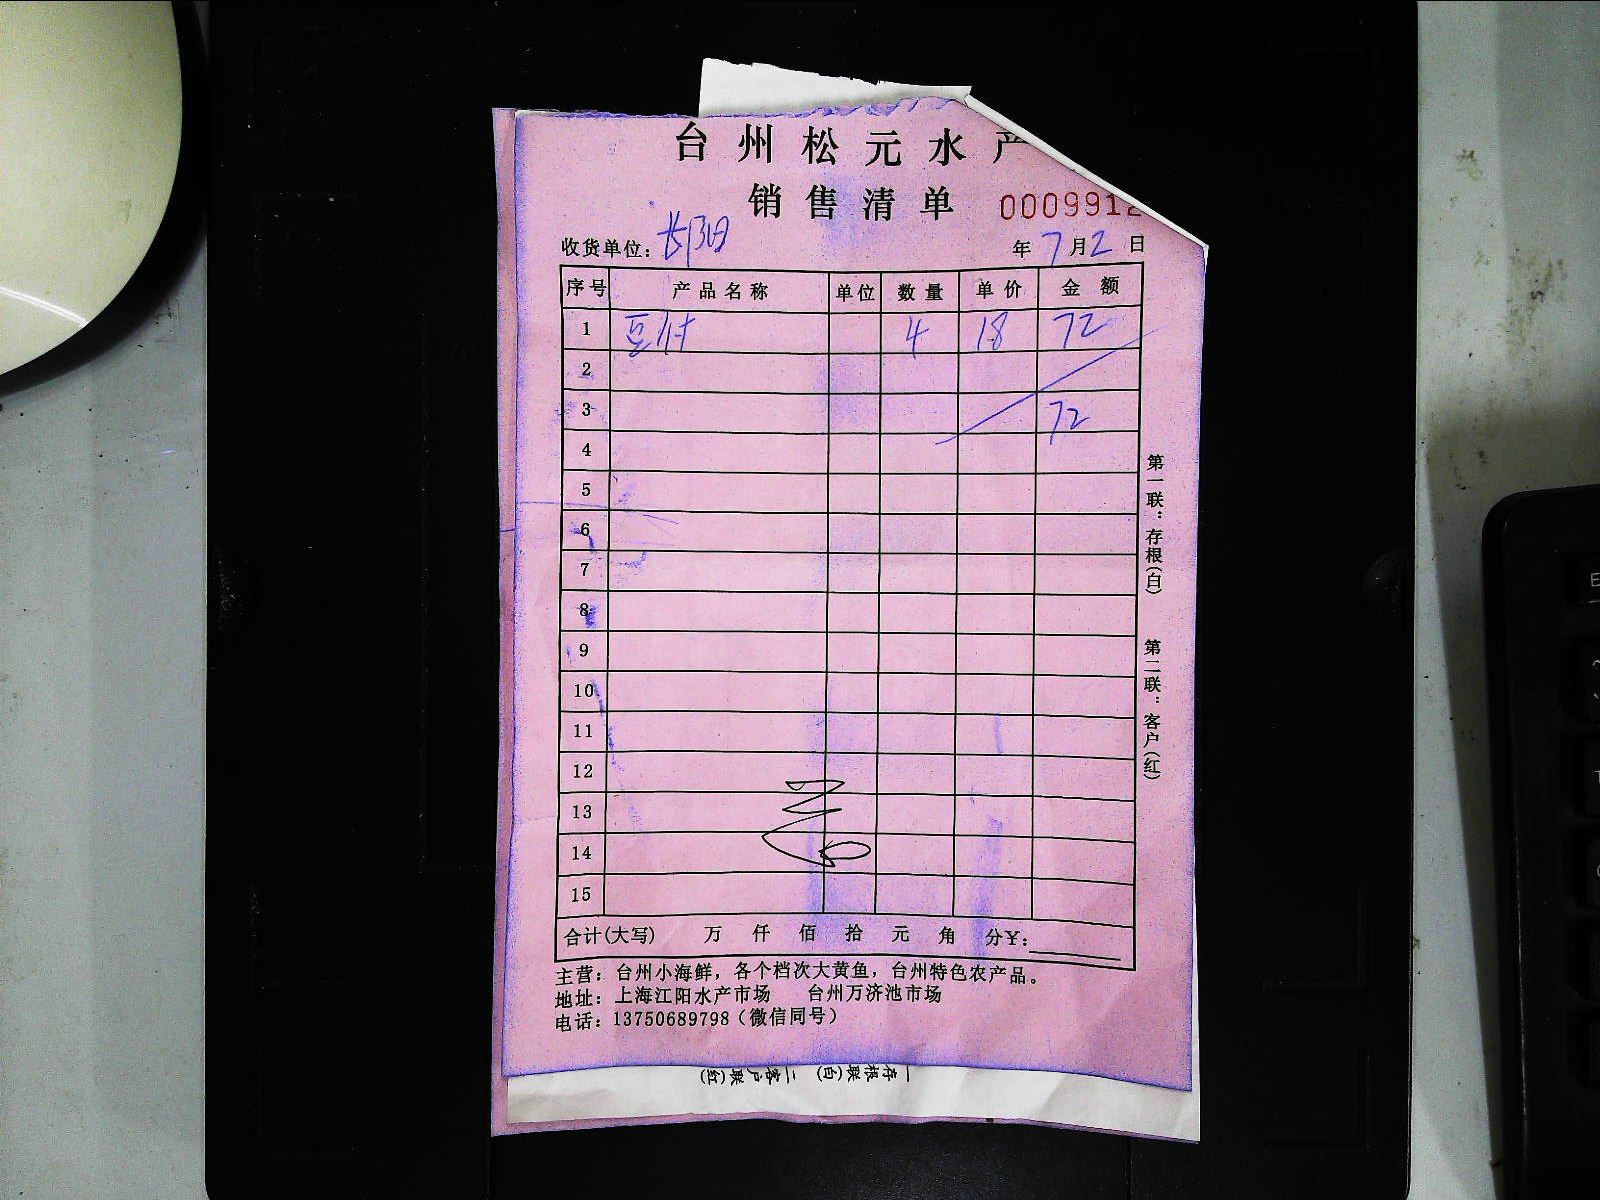 台州松元水产
销售清单 0009912
收货单位：长阳 年 7 月 2 日
序号 产品名称 单位 数量 单价 金额
1 豆付 4 18 72
2
3 72
4
5
6
7
8
9
10
11
12
13
14
15
合计(大写) 万 仟 佰 拾 元 角 分¥：
主营：台州小海鲜，各个档次大黄鱼，台州特色农产品。
地址：上海江阳水产市场 台州万济池市场
电话：13750689798（微信同号）
第一联：存根(白) 第二联：客户(红)
一存根联(白) 二客户联(红)